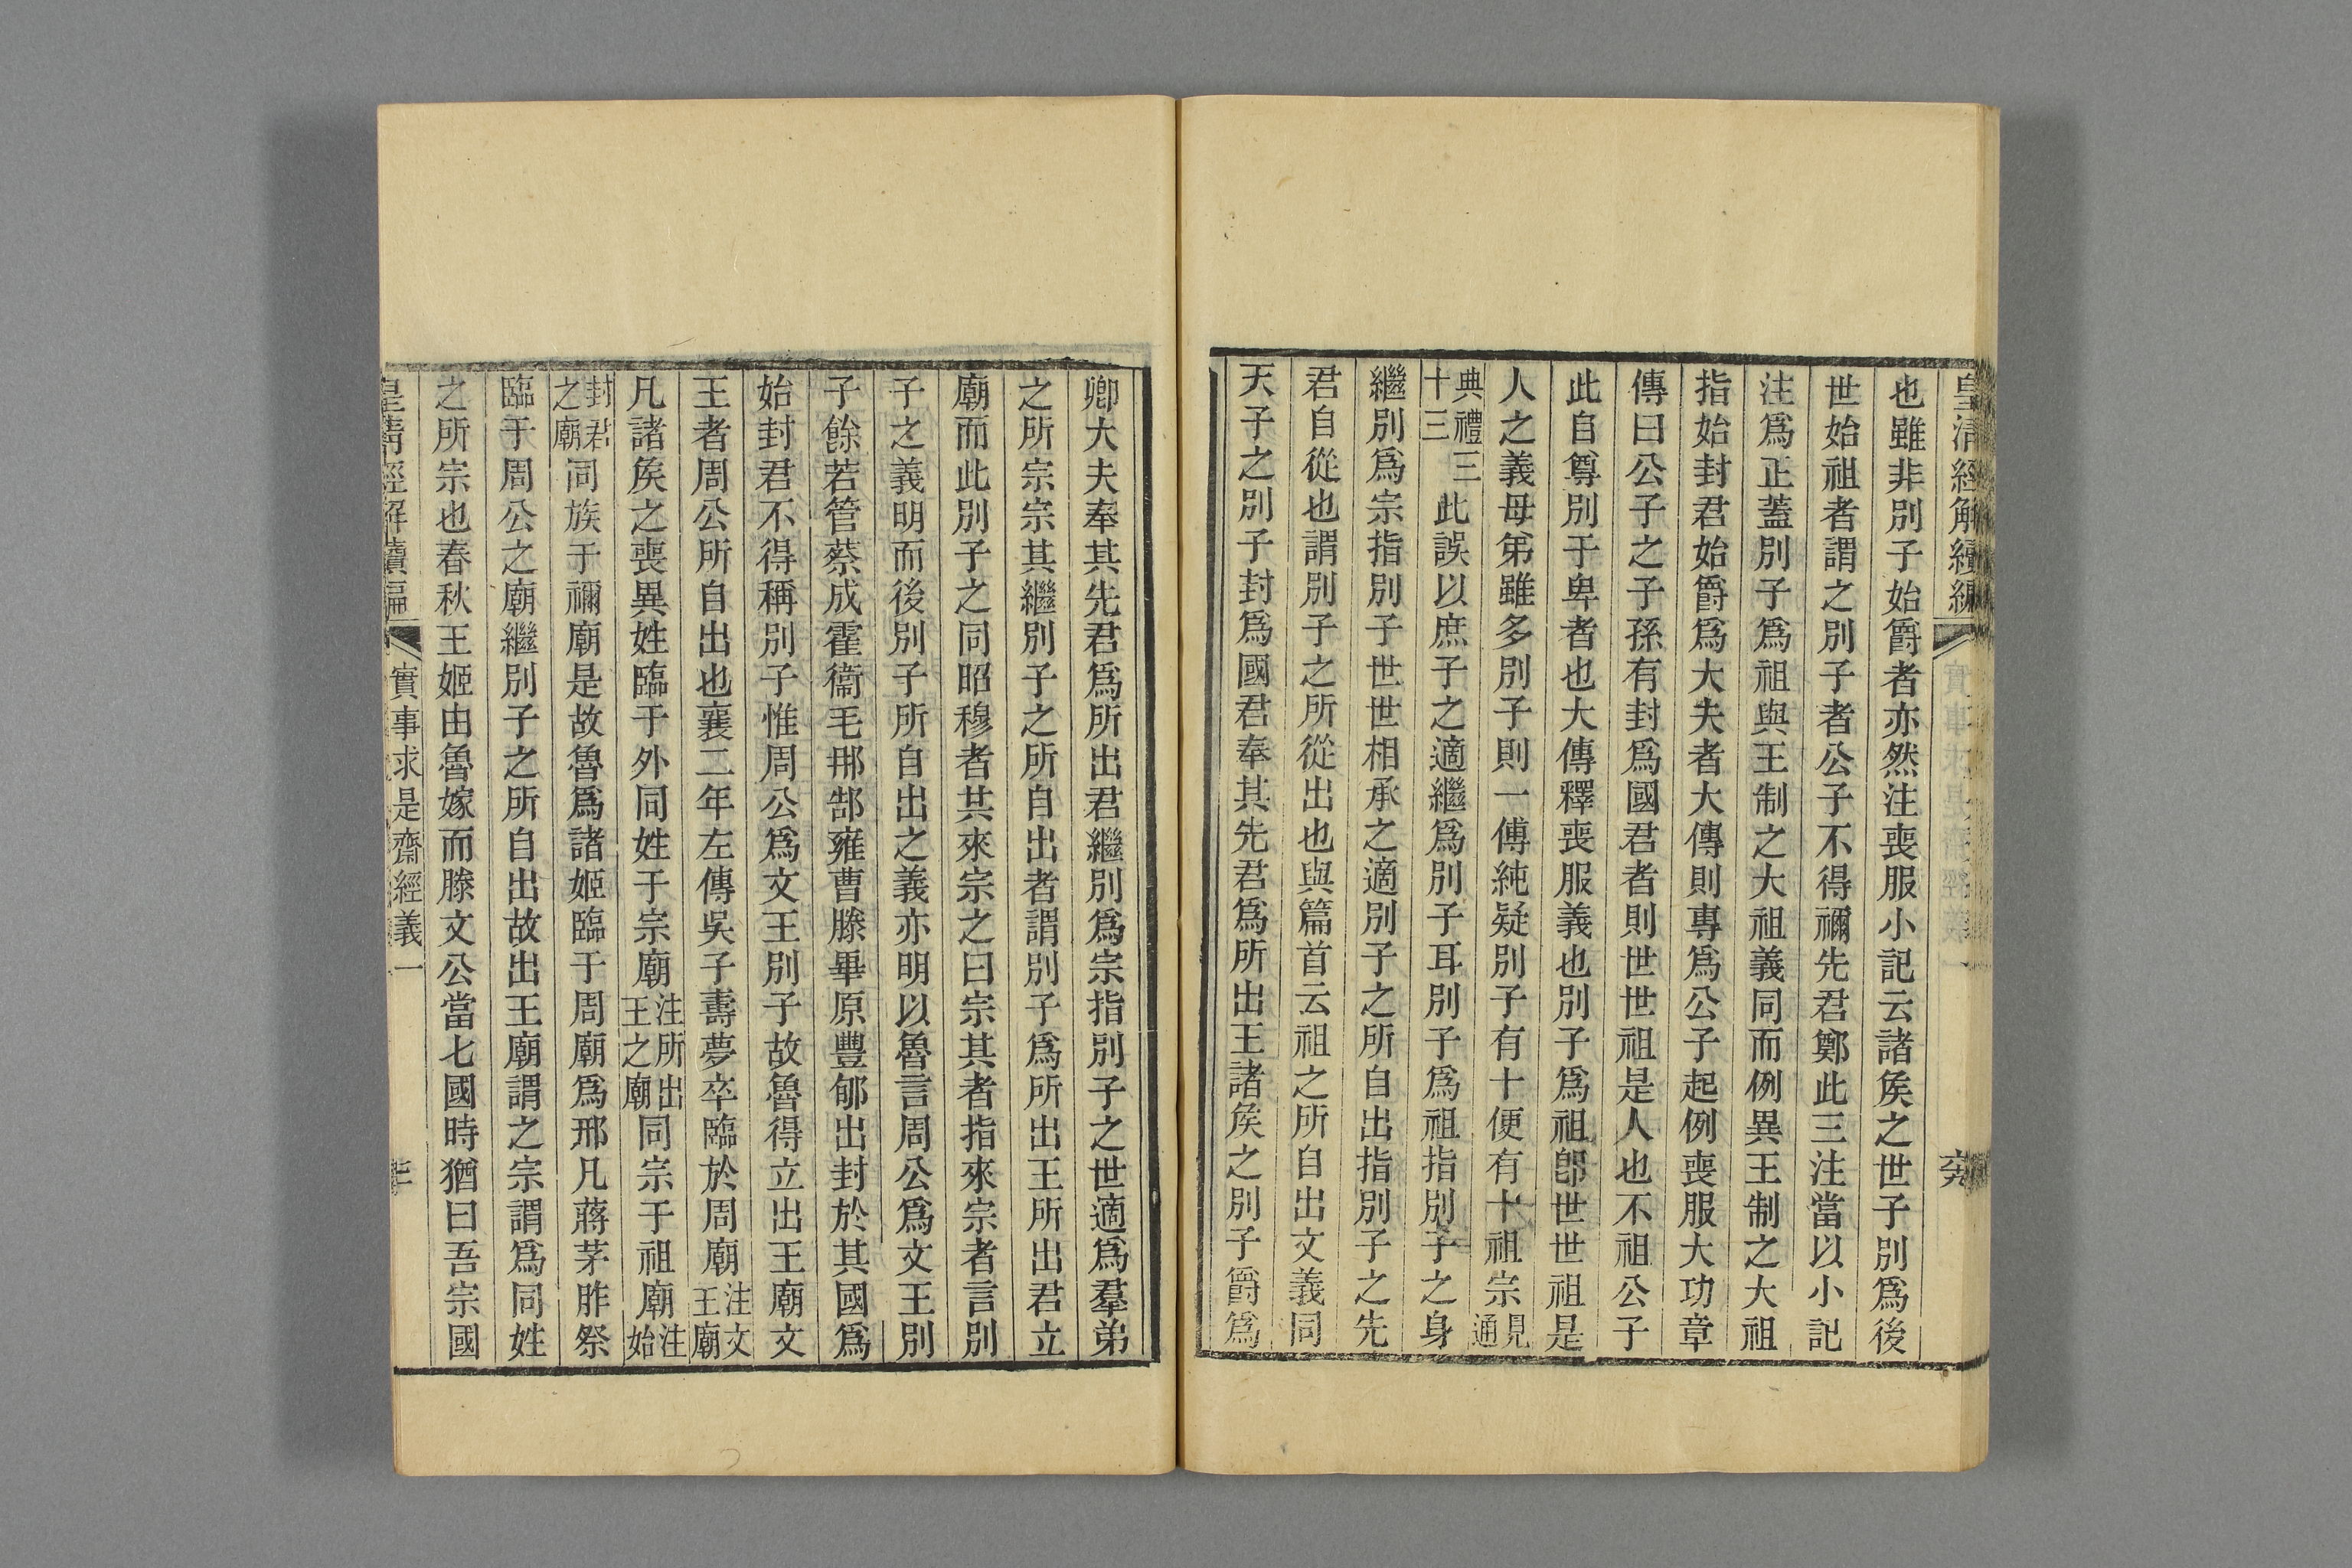 皇清經解續編
也雖非別子始爵者亦然注喪服小記云諸矦之世子別爲後
世始祖者謂之別子者公子不得禰先君鄭此三注當以小記
注爲正蓋別子爲祖與王制之大祖義同而例異王制之大祖
指始封君始爵爲大夫者大傳則專爲公子起例喪服大功章
傳曰公子之子孫有封爲國君者則世世祖是人也不祖公子
此自尊別于卑者也大傳釋喪服義也別子爲祖卽世世祖是
人之義母弟雖多別子則一傅純疑別子有十便有十祖宗見通
典禮三十三此誤以庶子之適繼爲別子耳別子爲祖指別子之身
繼別爲宗指別子世世相承之適別子之所自出指別子之先
君自從也謂別子之所從出也與篇首云祖之所自出文義同
天子之別子封爲國君奉其先君爲所出王諸矦之別子爵爲
卿大夫奉其先君爲所出君繼別爲宗指別子之世適爲羣弟
之所宗宗其繼別子之所自出者謂別子爲所出王所出君立
廟而此別子之同昭穆者共來宗之曰宗其者指來宗者言別
子之義明而後別子所自出之義亦明以魯言周公爲文王別
子餘若管蔡成霍衞毛𨙻郜雍曹滕畢原豐郇出封於其國爲
始封君不得稱別子惟周公爲文王別子故魯得立出王廟文
王者周公所自出也襄二年左傳吳子壽夢卒臨於周廟注文王廟
凡諸矦之喪異姓臨于外同姓于宗廟注所出王之廟同宗于祖廟注始
封君之廟同族于禰廟是故魯爲諸姬臨于周廟爲邢凡蔣茅胙祭
臨于周公之廟繼別子之所自出故出王廟謂之宗謂爲同姓
之所宗也春秋王姬由魯嫁而滕文公當七國時猶曰吾宗國
皇清經解續編 實事求是齋經義一